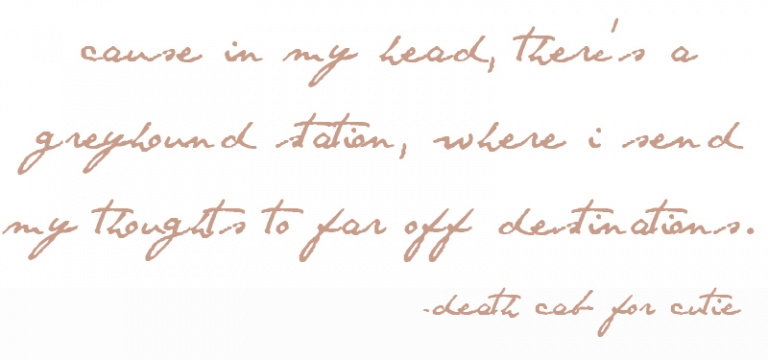 cause in my head, there's a
greyhound station, where i send
my thoughts to far off destinations.
-death cab for cutie